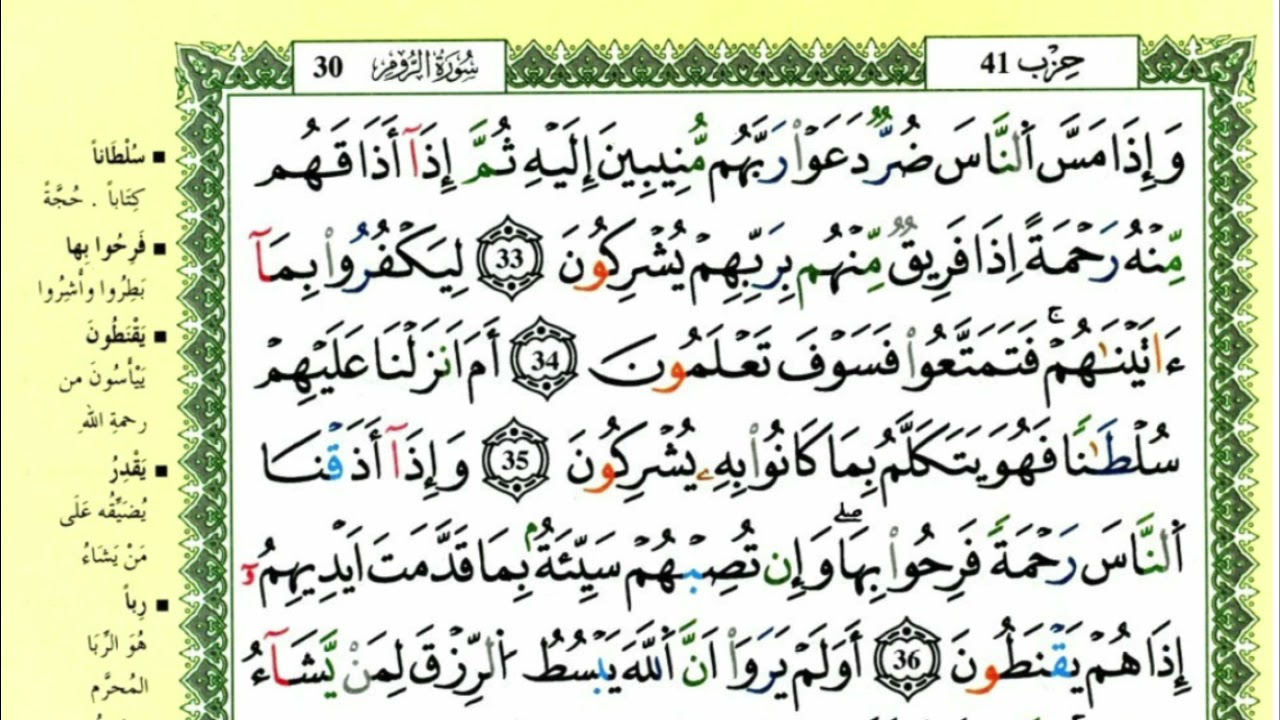 حِزْب 41
سُورَةُ الرُّومِ 30
وَإِذَا مَسَّ اَ۬لنَّاسَ ضُرّٞ دَعَوْاْ رَبَّهُم مُّنِيبِينَ إِلَيْهِ ثُمَّ إِذَآ أَذَاقَهُم
مِّنْهُ رَحْمَةً اِذَا فَرِيقٞ مِّنْهُم بِرَبِّهِمْ يُشْرِكُونَ 33 لِيَكْفُرُواْ بِمَآ
ءَاتَيْنَٰهُمْۚ فَتَمَتَّعُواْ فَسَوْفَ تَعْلَمُونَ 34 أَمَ اَنزَلْنَا عَلَيْهِمْ
سُلْطَٰناٗ فَهُوَ يَتَكَلَّمُ بِمَا كَانُواْ بِهِۦ يُشْرِكُونَ 35 وَإِذَآ أَذَقْنَا
اَ۬لنَّاسَ رَحْمَةٗ فَرِحُواْ بِهَاۖ وَإِن تُصِبْهُمْ سَيِّئَةُۢ بِمَا قَدَّمَتَ اَيْدِيهِمُۥٓ
إِذَا هُمْ يَقْنَطُونَ 36 أَوَلَمْ يَرَوَاْ اَنَّ اَ۬للَّهَ يَبْسُطُ اُ۬لرِّزْقَ لِمَنْ يَّشَآءُ
■ سُلْطَاناً
كِتَاباً . حُجَّةً
■ فَرِحُوا بِها
بَطِرُوا وأَشِرُوا
■ يَقْنَطُونَ
يَيْأَسُونَ من
رحمةِ اللهِ
■ يَقْدِرُ
يُضَيِّقُه عَلَى
مَنْ يَشَاءُ
■ رِباً
هُوَ الرِّبَا
المُحرَّم